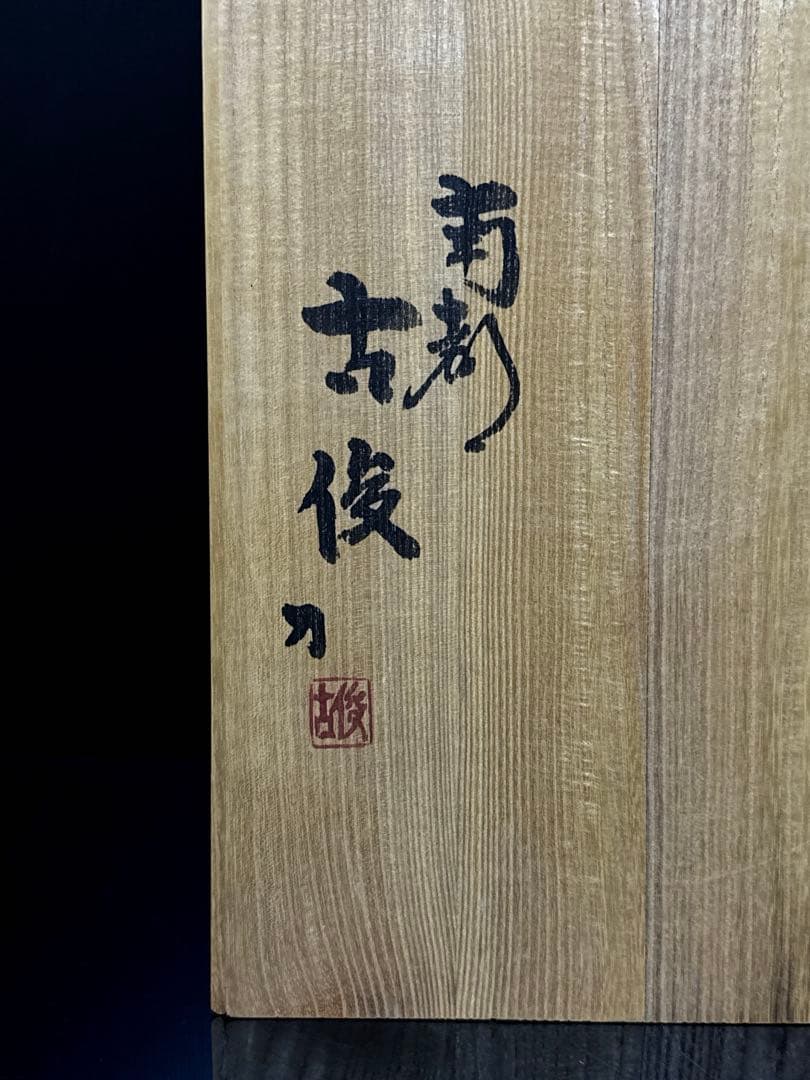 南都
古俊
刀
古俊